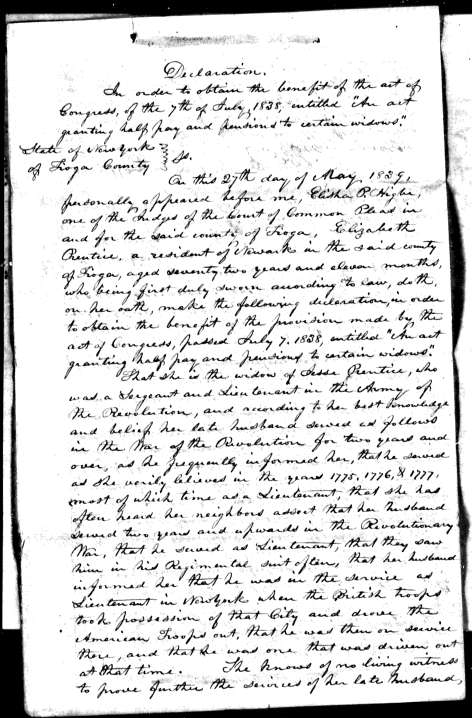 Declaration.
In order to obtain the benefit of the act of
Congress, of the 7th of July, 1838, entitled "An act
granting half pay and pensions to certain widows."
State of New York
of Tioga County } Ss.
On this 27th day of May 1839,
personally appeared before me, Elisha P. Higbe,
one of the Judges of the Court of Common Pleas in
and for the said county of Tioga, Elizabeth
Prentice, a resident of Newark in the said county
of Tioga, aged seventy two years and eleven months,
who being first duly sworn according to law, doth,
on her oath, make the following declaration, in order
to obtain the benefit of the provision made by the
act of Congress, passed July 7. 1838, entitled "An act
granting half pay and pensions to certain widows".
That she is the widow of Jesse Prentice, who
was a Sergeant and Lieutenant in the Army of
the Revolution, and according to her best knowledge
and belief her late husband served as follows
in the War of the Revolution for two years and
over, as he frequently informed her, that he served
as she verily believes in the years 1775, 1776, & 1777,
most of which time as a Lieutenant, that she has
often heard her neighbors assert that her husband
served two years and upwards in the Revolutionary
War, that he served as Lieutenant, that they saw
him in his Regimental suit often, that her husband
informed her that he was in the service as
Lieutenant in New York when the British troops
took possession of that City and drove the
American Troops out, that he was then on service
there, and that he was one that was driven out
at that time. She knows of no living witness
to prove further the services of her late husband,